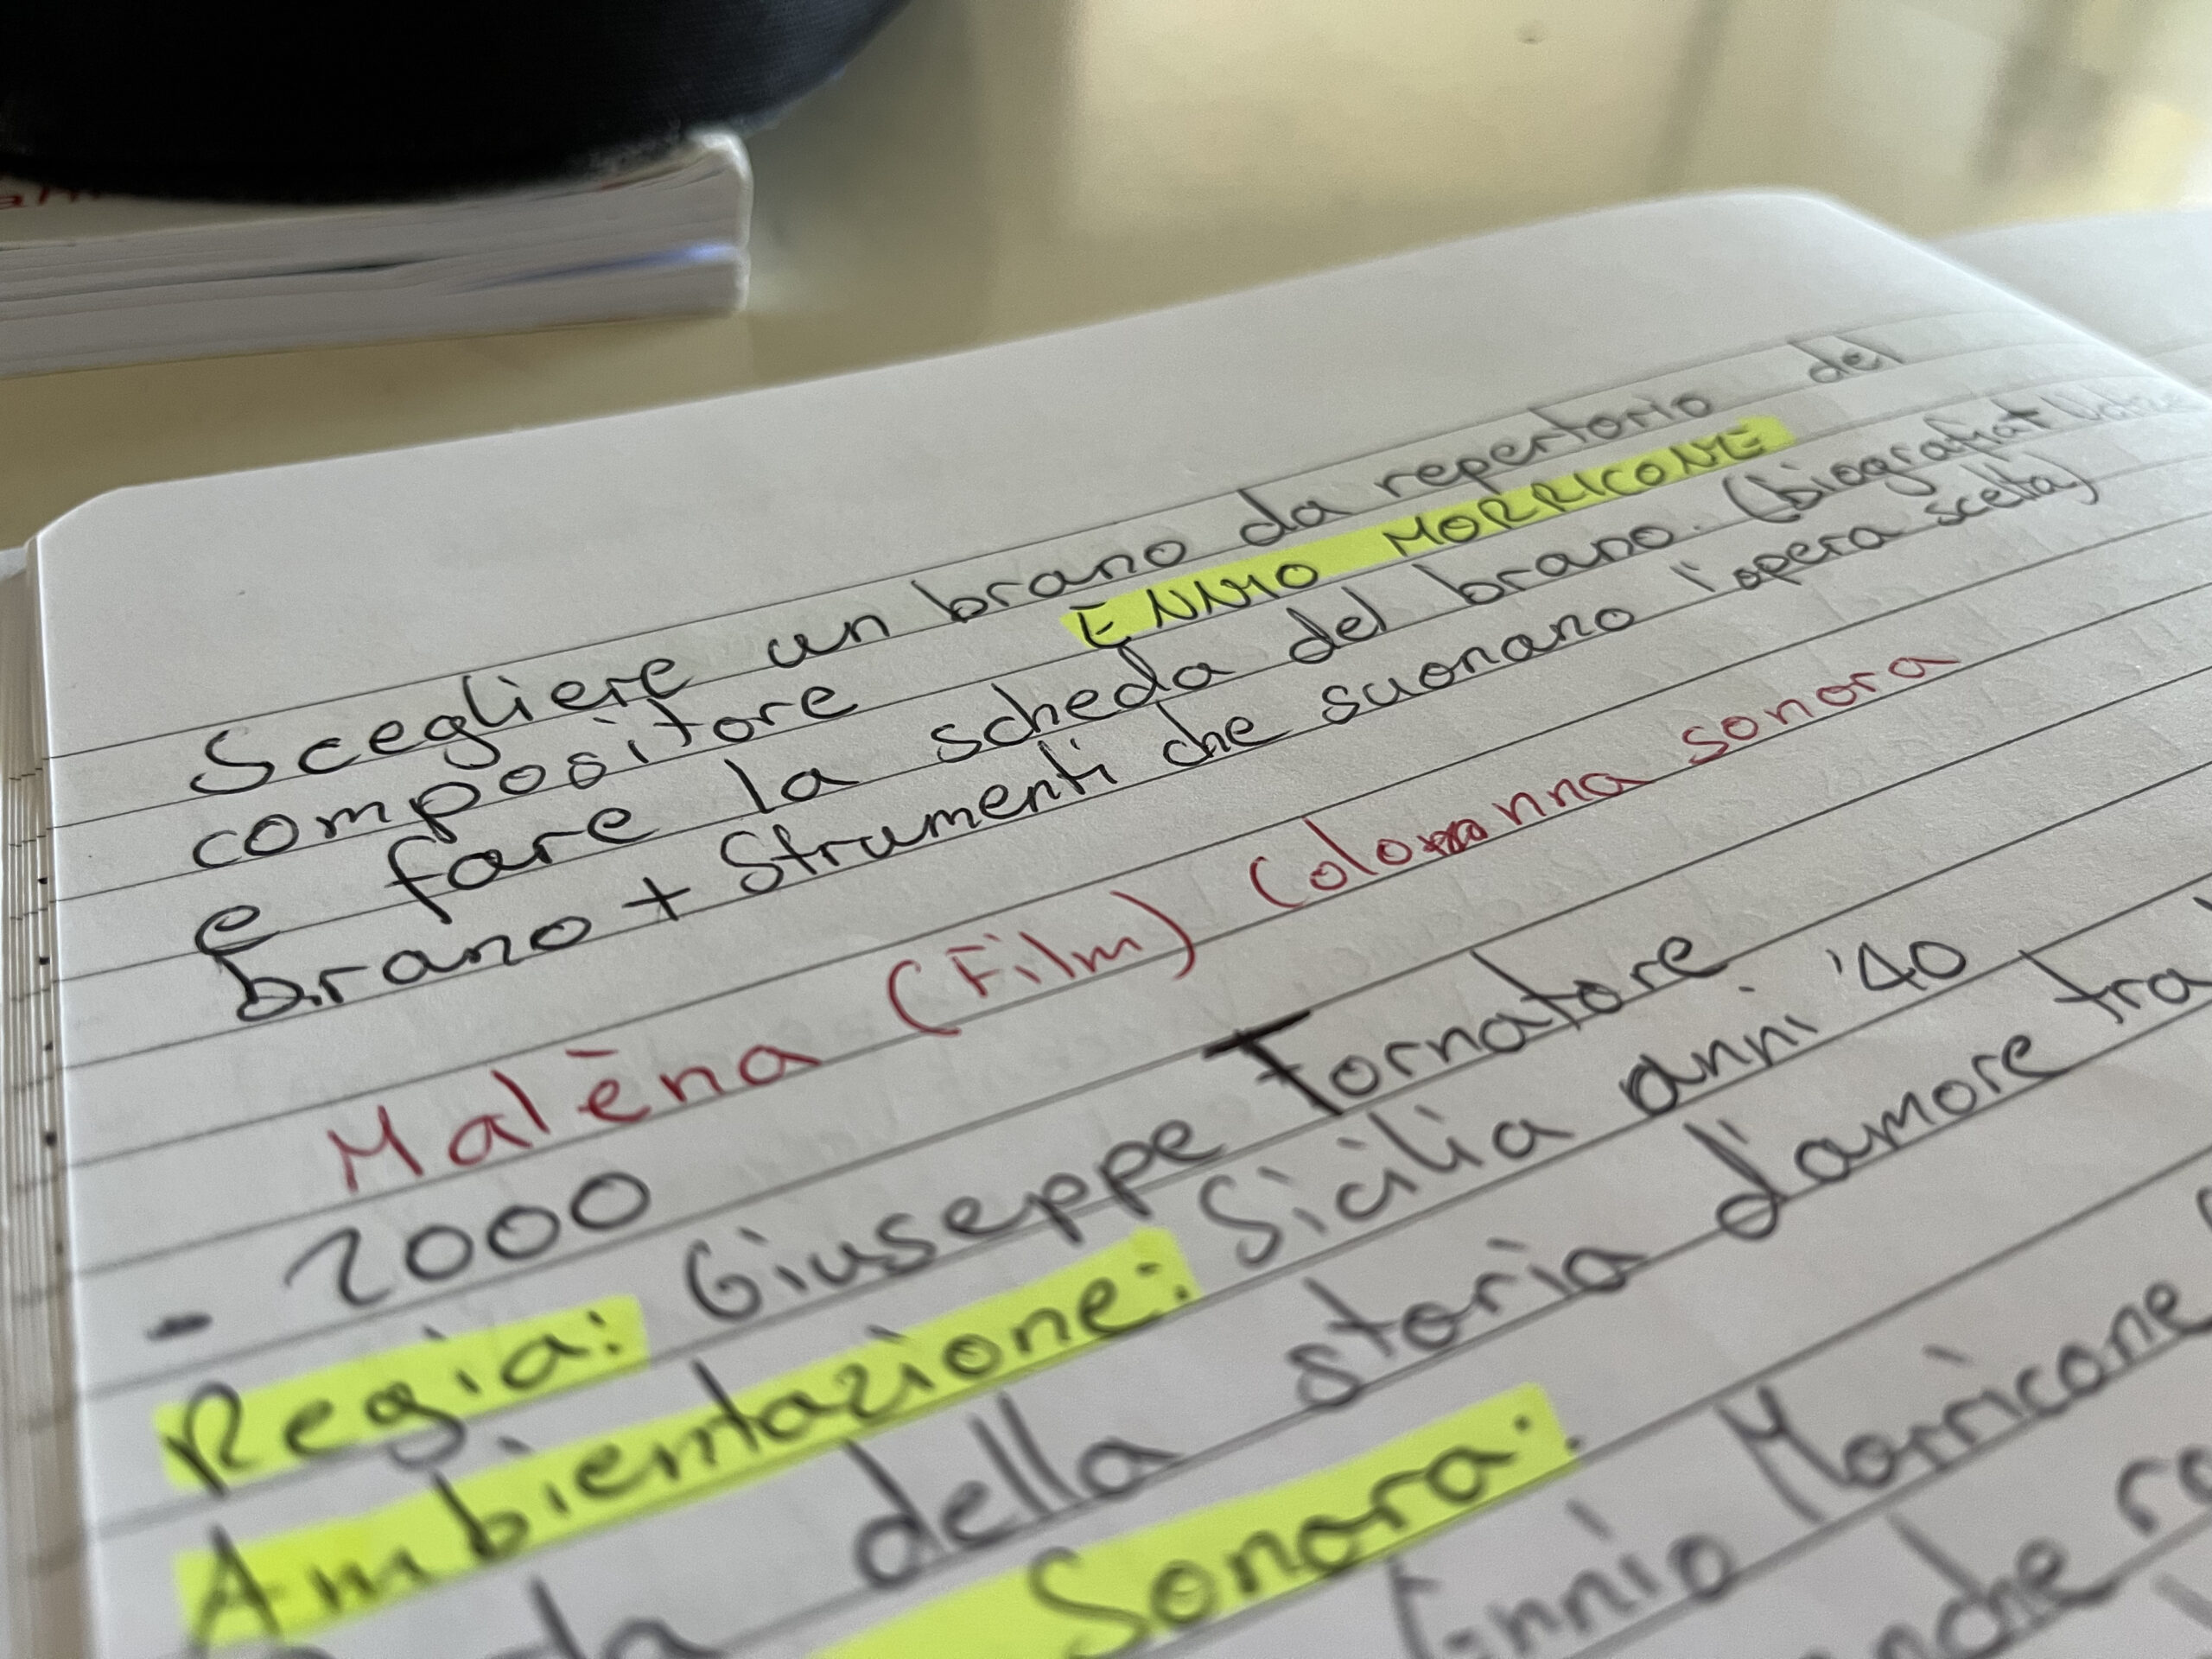 Scegliere un brano da repertorio del
compositore ENNIO MORRICONE
e fare la scheda del brano. (biografia +
brano + Strumenti che suonano l'opera scelta)
Malèna (Film) Colonna sonora
- 2000
Regia: Giuseppe Tornatore
Ambientazione: Sicilia anni '40
della storia d'amore tra
Sonora:
Ennio Morricone